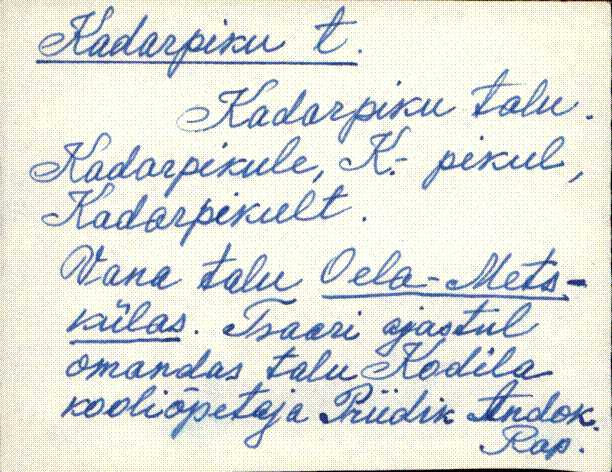 Kadarpiku t.
Kadarpiku talu.
Kadarpikule, K.- pikul,
Kadarpikult.
Vana talu Oela-Mets-
külas. Tsaari ajastul
omandas talu Kodila
kooliõpetaja Priidik Andok.
Rap.